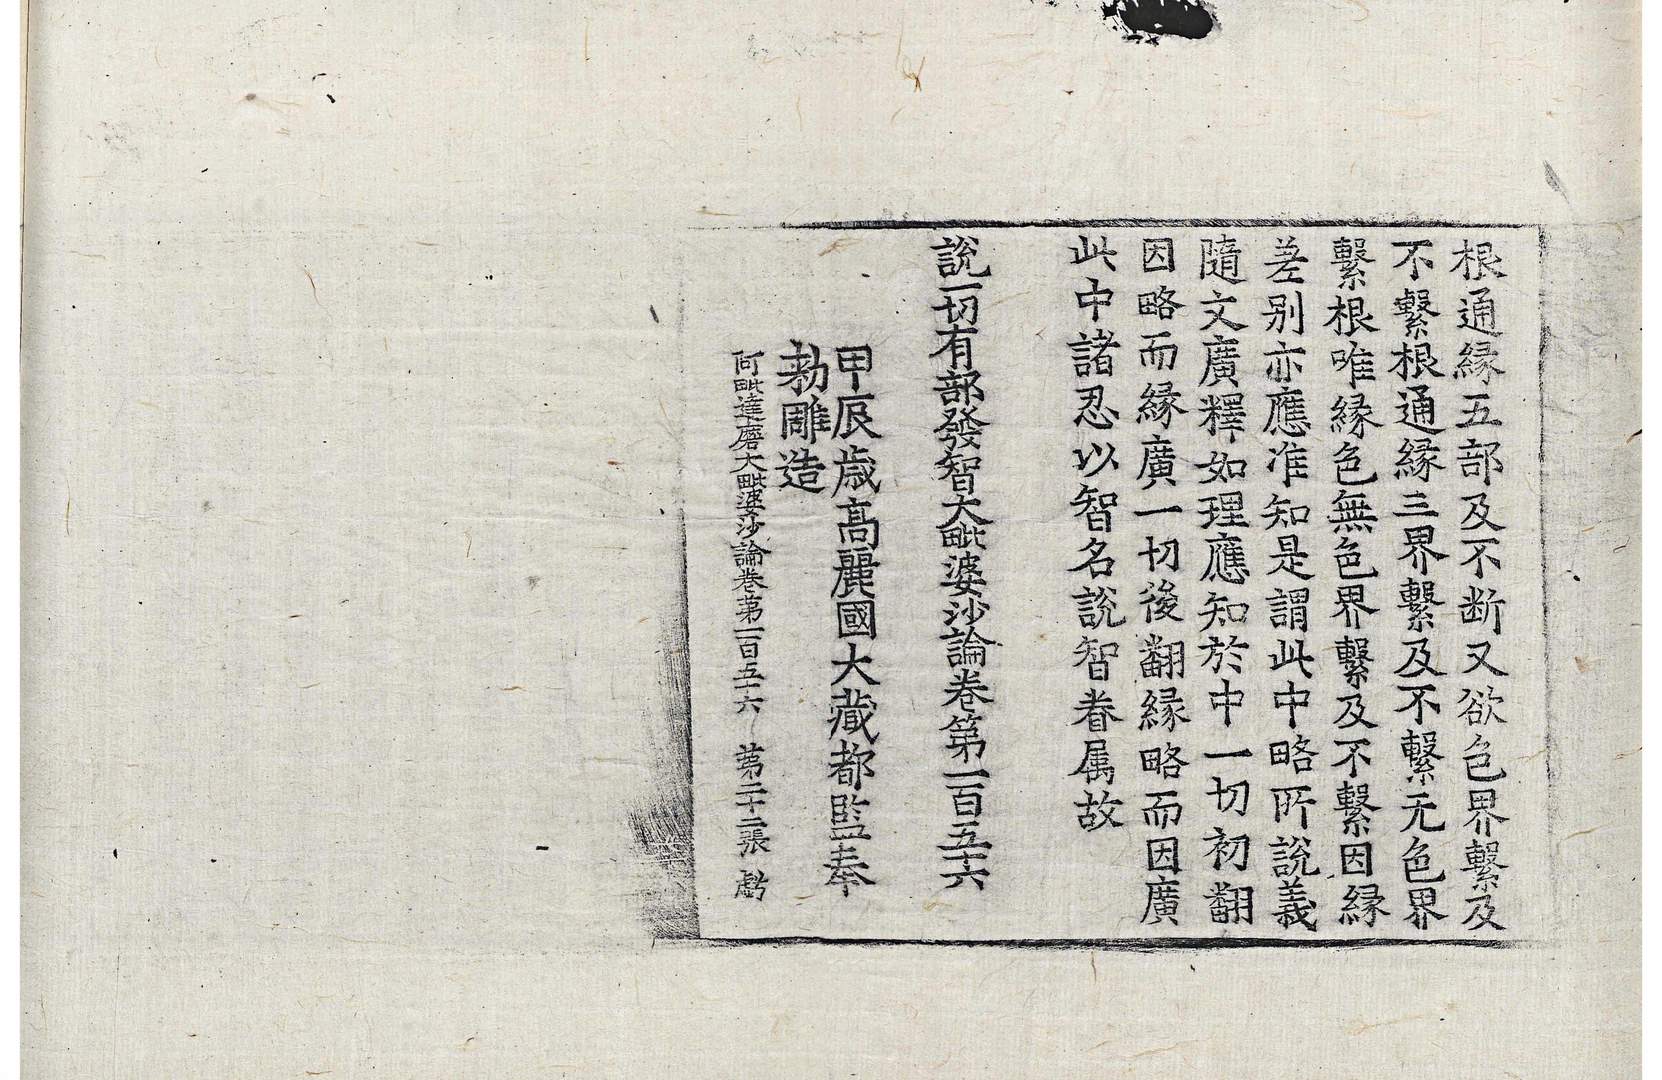 根通縁五部及不断又欲色界繫及
不繫根通縁三界繫及不繫无色界
繫根唯縁色無色界繫及不繫因縁
差别亦應准知是謂此中略所說義
隨文廣釋如理應知於中一切初翻
因略而縁廣一切後翻縁略而因廣
此中諸忍以智名說智眷属故
說一切有部發智大毗婆沙論卷第一百五十六
甲辰歳高麗國大藏都監奉
勑雕造
阿毗達磨大毗婆沙論卷第一百五十六 第二十二張